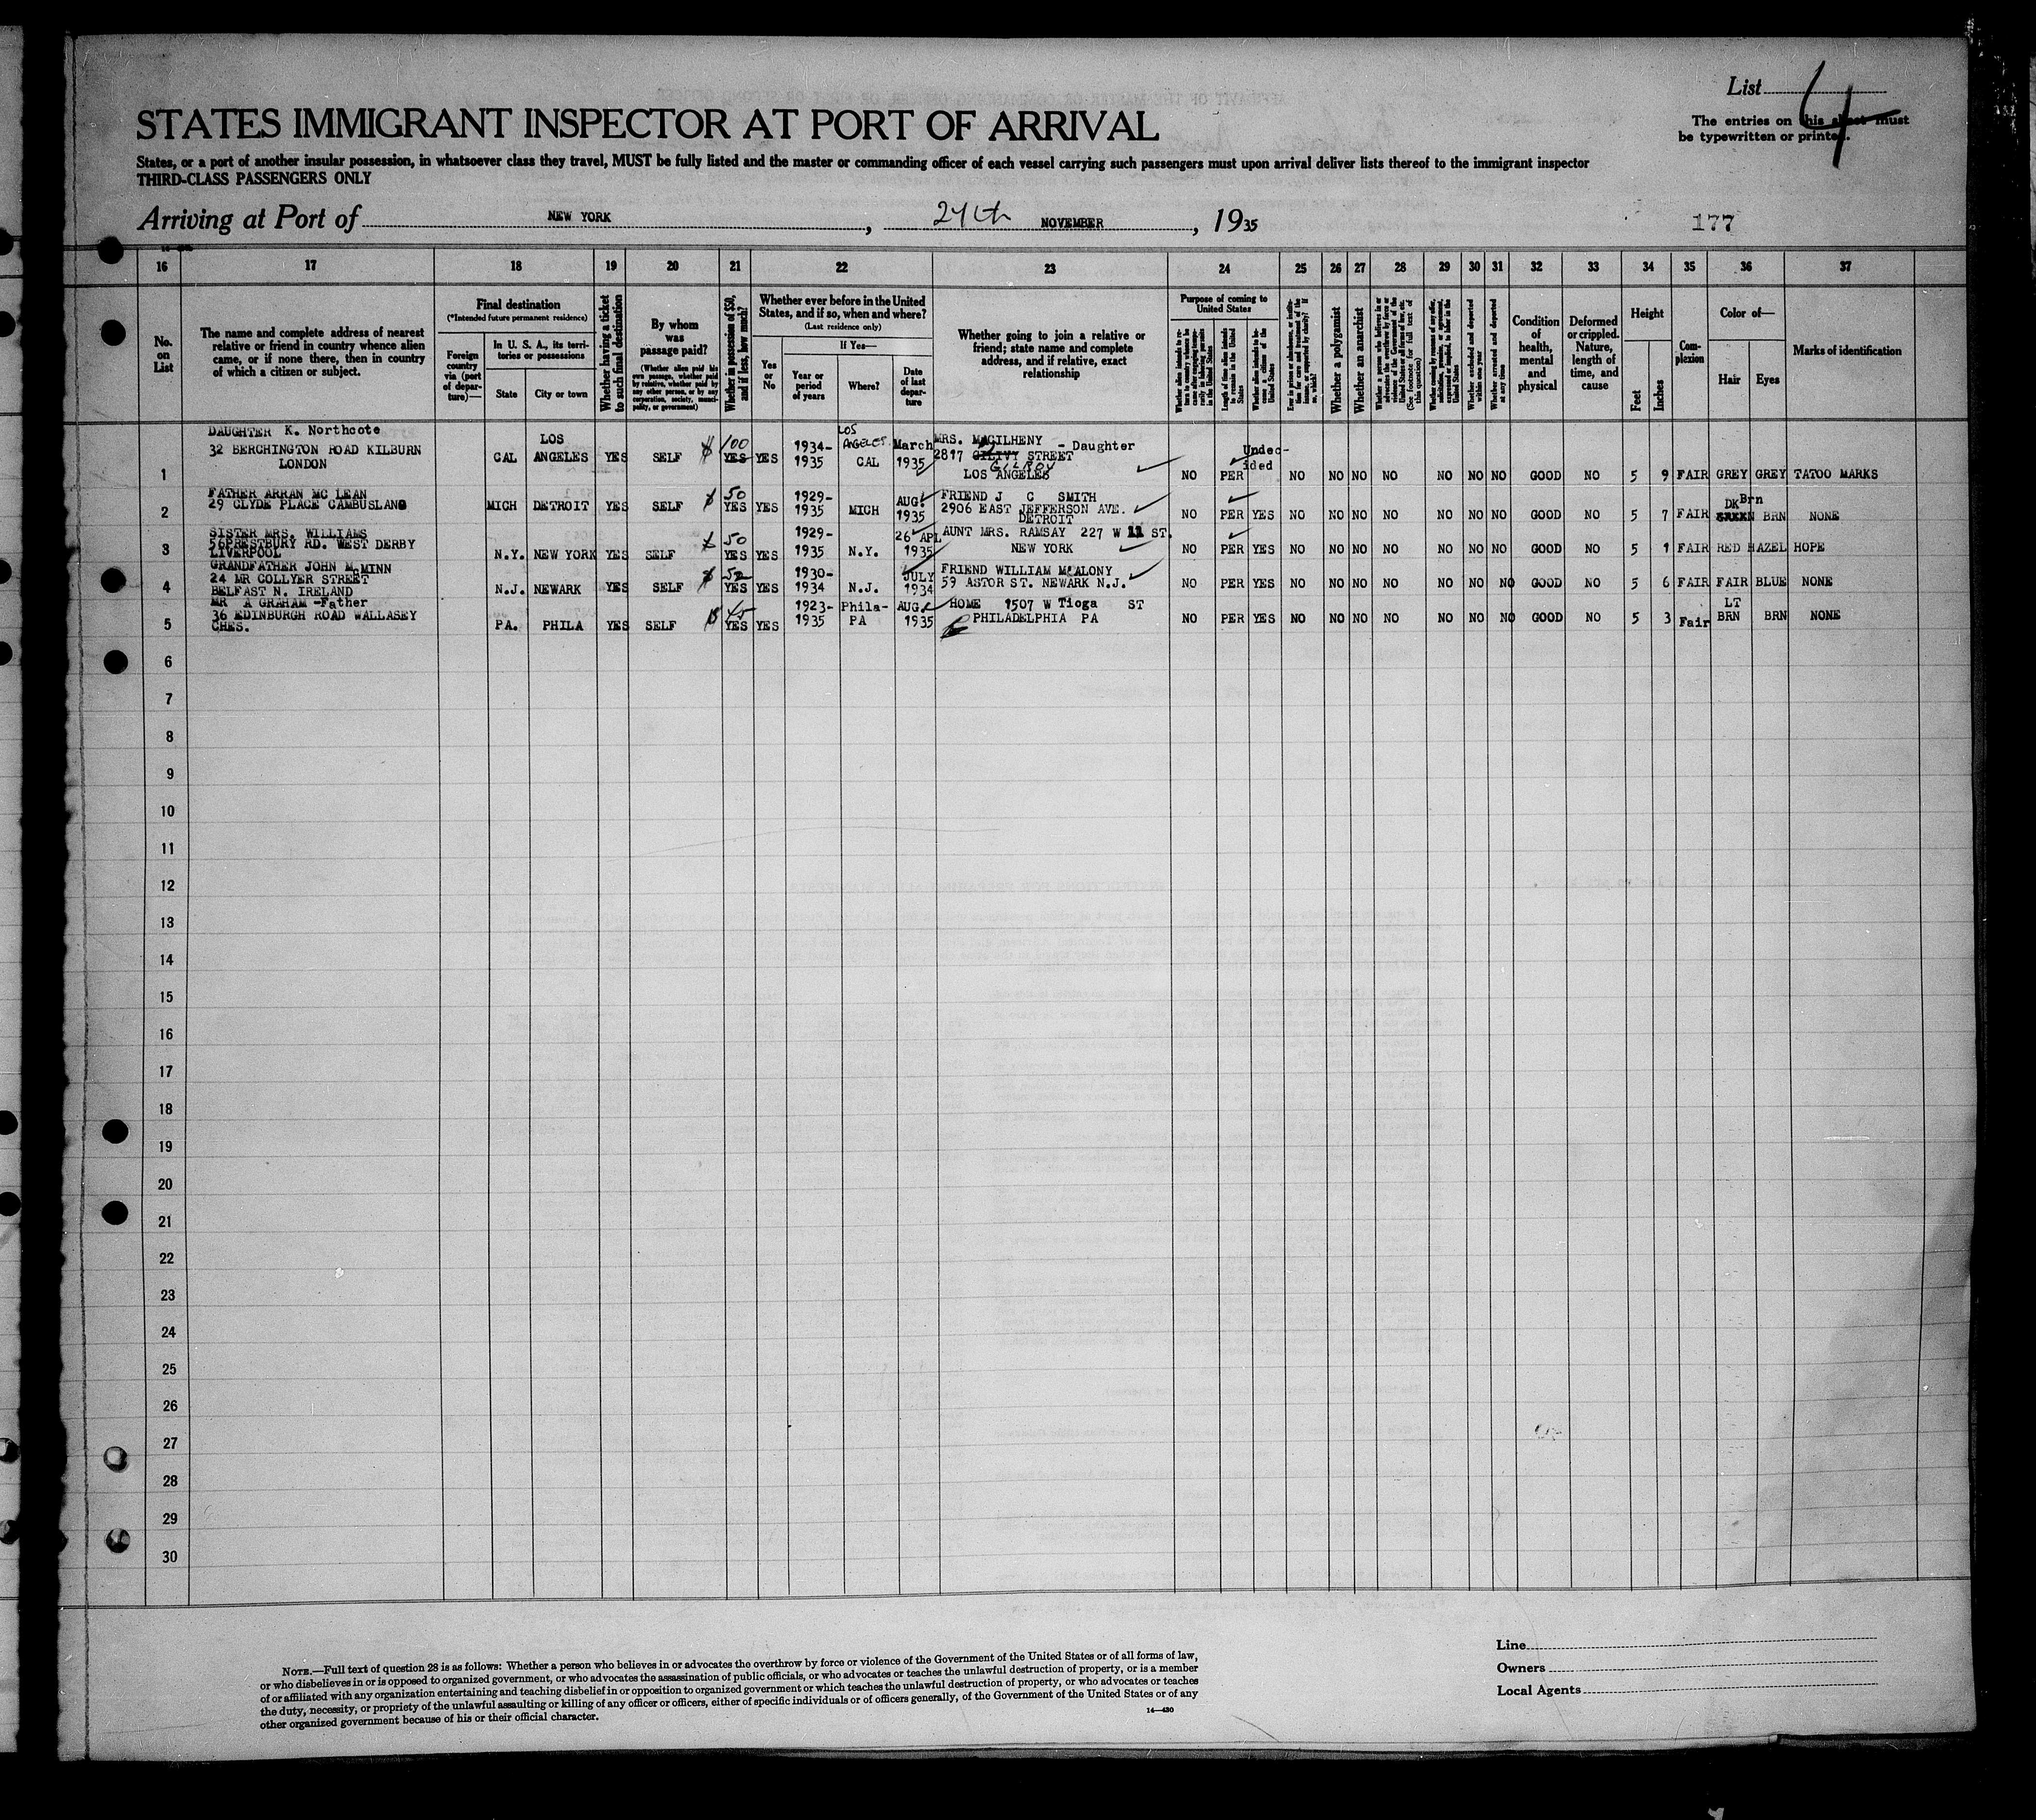 List 4
The entries on this sheet must
be typewritten or printed.
STATES IMMIGRANT INSPECTOR AT PORT OF ARRIVAL
States, or a port of another insular possession, in whatsoever class they travel, MUST be fully listed and the master or commanding officer of each vessel carrying such passengers must upon arrival deliver lists thereof to the immigrant inspector
THIRD-CLASS PASSENGERS ONLY
Arriving at Port of NEW YORK, 24th NOVEMBER, 1935
177
16 17 18 19 20 21 22 23 24 25 26 27 28 29 30 31 32 33 34 35 36 37
No. on List
The name and complete address of nearest
relative or friend in country whence alien
came, or if none there, then in country
of which a citizen or subject.
Final destination
(*Intended future permanent residence)
Foreign country via (port of departure)—
In U. S. A., its territories or possessions
State
City or town
Whether having a ticket to such final destination
By whom was passage paid?
(Whether alien paid his own passage, whether paid by relative, whether paid by any other person, or by any corporation, society, municipality, or government)
Whether in possession of $50, and if less, how much?
Whether ever before in the United States, and if so, when and where?
(Last residence only)
Yes or No
If Yes—
Year or period of years
Where?
Date of last departure
Whether going to join a relative or
friend; state name and complete
address, and if relative, exact
relationship
Purpose of coming to United States
Length of time alien intends to remain in the United States
Whether alien intends to become a citizen of the United States
Whether a polygamist
Whether an anarchist
Whether excluded and deported within one year
Whether arrested and deported at any time
Condition of health, mental and physical
Deformed or crippled. Nature, length of time, and cause
Height
Feet
Inches
Complexion
Color of—
Hair
Eyes
Marks of identification
DAUGHTER K. Northcote
32 BERCHINGTON ROAD KILBURN
LONDON
1 CAL LOS ANGELES YES SELF $100 YES YES 1934-1935 LOS ANGELES CAL March 1935 MRS. MACILHENY - Daughter
2817 GILROY STREET
LOS ANGELES
NO PER Undecided NO NO NO NO NO NO NO GOOD NO 5 9 FAIR GREY GREY TATOO MARKS
FATHER ARRAN MC LEAN
29 CLYDE PLACE CAMBUSLANG
2 MICH DETROIT YES SELF $50 YES YES 1929-1935 MICH AUG. 1935 FRIEND J C SMITH
2906 EAST JEFFERSON AVE.
DETROIT
NO PER YES NO NO NO NO NO NO NO GOOD NO 5 7 FAIR DK Brn BRN NONE
SISTER MRS. WILLIAMS
56 PRESTBURY RD. WEST DERBY
LIVERPOOL
3 N.Y. NEW YORK YES SELF $50 YES YES 1929-1935 N.Y. 26 APL 1935 AUNT MRS. RAMSAY 227 W 11 ST.
NEW YORK
NO PER YES NO NO NO NO NO NO NO GOOD NO 5 1 FAIR RED HAZEL HOPE
GRANDFATHER JOHN McMINN
24 MR COLLYER STREET
BELFAST N. IRELAND
4 N.J. NEWARK YES SELF $52 YES YES 1930-1934 N.J. JULY 1934 FRIEND WILLIAM McALONY
59 ASTOR ST. NEWARK N.J.
NO PER YES NO NO NO NO NO NO NO GOOD NO 5 6 FAIR FAIR BLUE NONE
MR A GRAHAM -Father
36 EDINBURGH ROAD WALLASEY
CHES.
5 PA. PHILA YES SELF $45 YES YES 1923-1935 Phila-PA AUG. 1935 HOME 1507 W Tioga ST
PHILADELPHIA PA
NO PER YES NO NO NO NO NO NO NO GOOD NO 5 3 Fair LT BRN BRN NONE
6
7
8
9
10
11
12
13
14
15
16
17
18
19
20
21
22
23
24
25
26
27
28
29
30
NOTE.—Full text of question 28 is as follows: Whether a person who believes in or advocates the overthrow by force or violence of the Government of the United States or of all forms of law,
or who disbelieves in or is opposed to organized government, or who advocates the assassination of public officials, or who advocates or teaches the unlawful destruction of property, or is a member
of or affiliated with any organization entertaining and teaching disbelief in or opposition to organized government or which teaches the unlawful destruction of property, or who advocates or teaches
the duty, necessity, or propriety of the unlawful assaulting or killing of any officer or officers, either of specific individuals or of officers generally, of the Government of the United States or of any
other organized government because of his or their official character.
14—430
Line
Owners
Local Agents